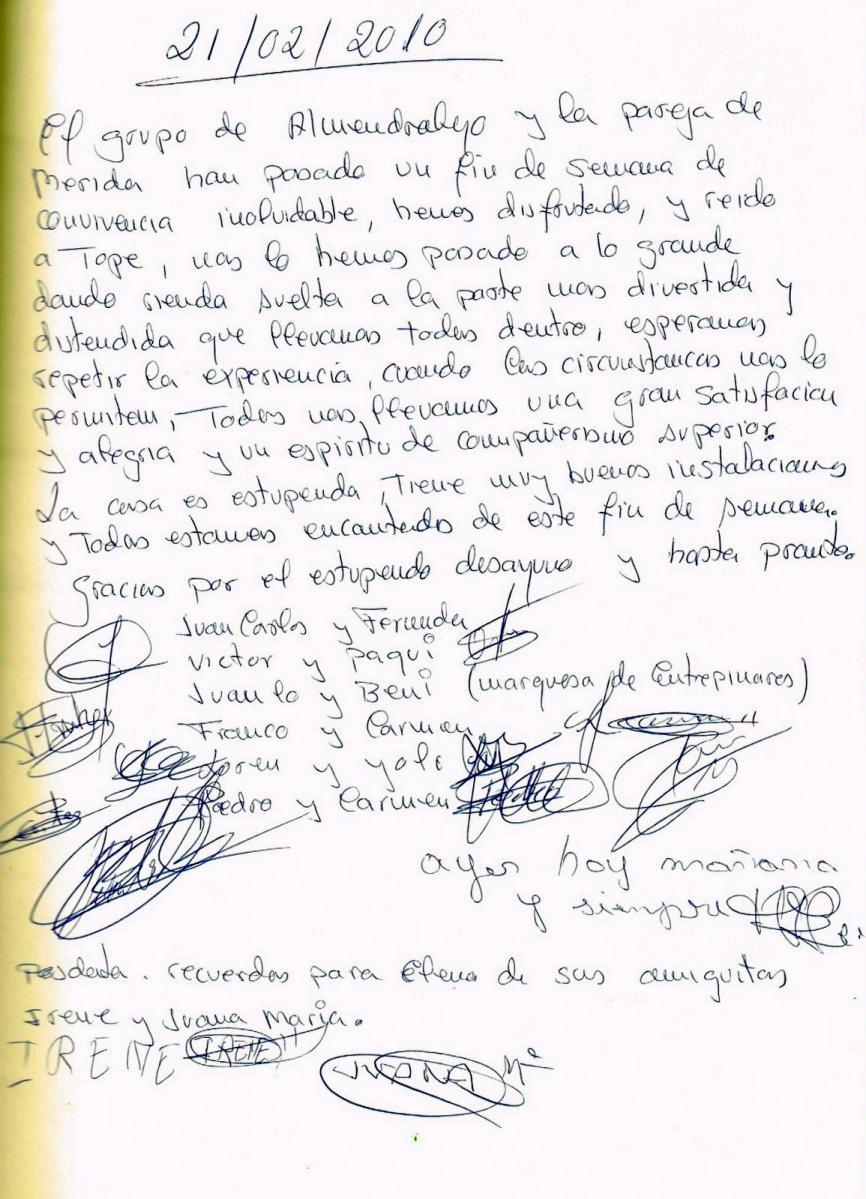 21/02/2010
El grupo de Almendralejo y la pareja de
Merida han pasado un fin de semana de
convivencia inolvidable, hemos disfrutado, y reido
a Tope, nos lo hemos pasado a lo grande
dando rienda suelta a la parte mas divertida y
distendida que llevamos todos dentro, esperamos
repetir la experiencia, cuando las circunstancas nos lo
permitem, Todos nos llevamos una gran satisfacion
y alegria y un espiritu de compañerismo superior.
La casa es estupenda, Tiene muy buenos instalaciones
y Todos estamos encantados de este fin de semana.
Gracias por el estupendo desayuno y hasta pronto.
Juan Carlos y Fernanda
Victor y Paqui
Juanlo y Beni (marquesa de Entrepinares)
Franco y Carmen
Loren y yoli
Pedro y Carmen
ayer hoy mañana
y siempre
Posdata. recuerdos para Elena de sus amiguitas
Irene y Juana Maria.
IRENE IRENE
JUANA Mª